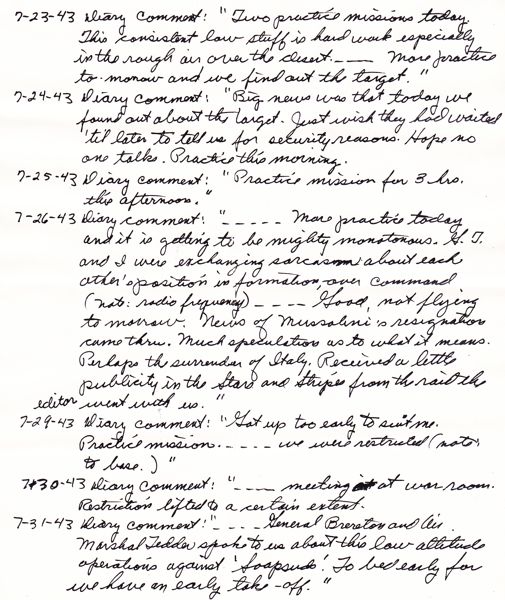 7-23-43 Diary comment: "Two practice missions today.
This consistent low stuff is hard work especially
in the rough air over the desert. _ _ _ _ More practice
to-morrow and we find out the target."
7-24-43 Diary comment: "Big news was that today we
found out about the target. Just wish they had waited
'til later to tell us for security reasons. Hope no
one talks. Practice this morning.
7-25-43 Diary comment: "Practice mission for 3 hrs.
this afternoon."
7-26-43 Diary comment: "_ _ _ _ _ More practice today
and it is getting to be mighty monotonous. G.T.
and I were exchanging sarcasm about each
other's position in formation over command
(note: radio frequency) _ _ _ _ Good, not flying
to morrow. News of Mussolini's resignation
came thru. Much speculation as to what it means.
Perhaps the surrender of Italy. Received a little
publicity in the Stars and Stripes from the raid the
editor went with us."
7-29-43 Diary comment: "Got up too early to suit me.
Practice mission. _ _ _ _ we were restricted (note:
to base.)"
7-30-43 Diary comment: "_ _ _ _ meeting at war room.
Restriction lifted to a certain extent.
7-31-43 Diary comment: "_ _ _ _ General Brereton and Air
Marshal Tedder spoke to us about this low altitude
operations against 'Soapsuds'. To bed early for
we have an early take-off."